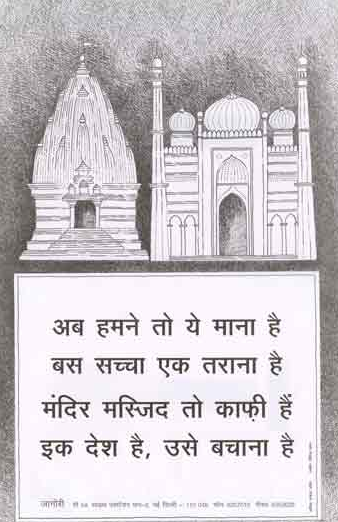 अब हमने तो ये माना है
बस सच्चा एक तराना है
मंदिर मस्जिद तो काफ़ी हैं
इक देश है, उसे बचाना है
जागोरी